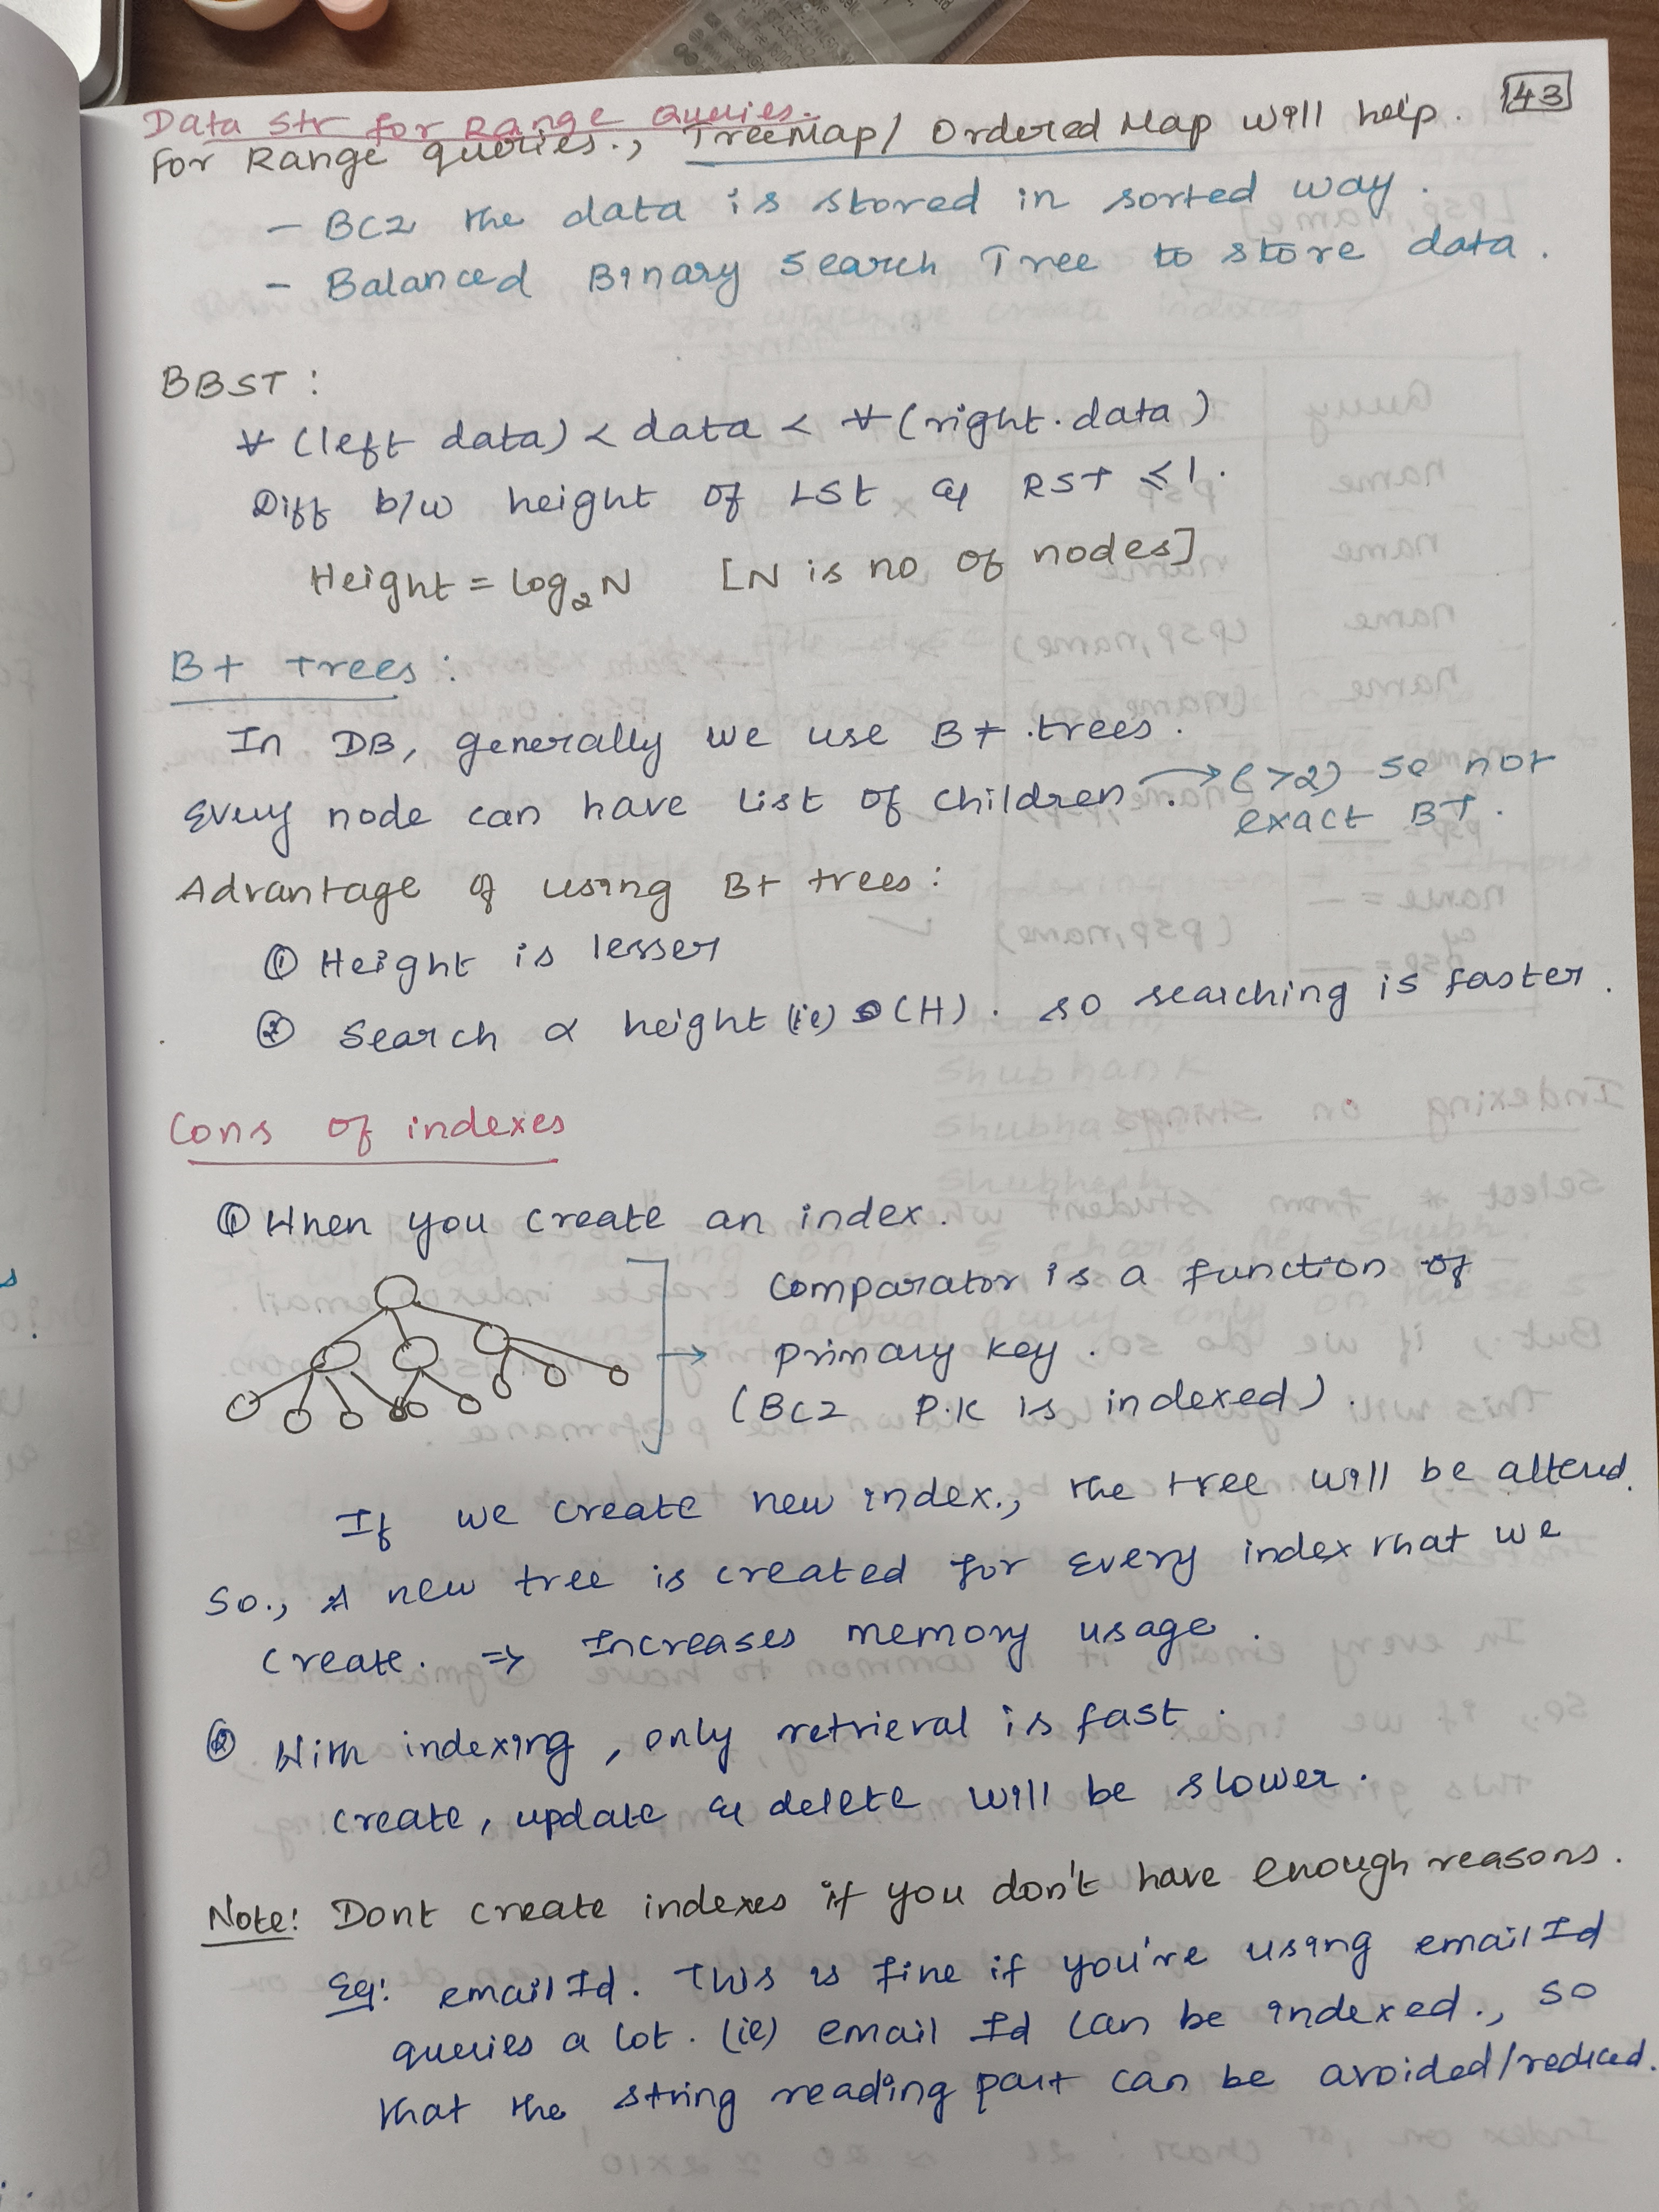 143
Data Str for Range Queries.
For Range queries., TreeMap/ Ordered Map will help.
- Bcz the data is stored in sorted way.
- Balanced Binary Search Tree to store data.
BBST :
∀ (left data) < data < ∀ (right.data)
Diff b/w height of LST & RST ≤ 1.
Height = log₂N [N is no of nodes]
B+ Trees :
In DB, generally we use B+ trees.
Every node can have list of children. → (>2) so not
exact BT.
Advantage of using B+ trees :
① Height is lesser
② Search α height (ie) O(H). so searching is faster.
Cons of indexes
① When you create an index.
Comparator is a function of
primary key.
(Bcz P.K is indexed).
If we create new index., the tree will be altered.
So., A new tree is created for every index that we
create. ⇒ Increases memory usage.
② With indexing, only retrieval is fast.
create, update & delete will be slower.
Note: Dont create indexes if you don't have enough reasons.
Eg: email Id. This is fine if you're using email Id
queries a lot. (ie) email Id can be indexed., so
that the string reading part can be avoided/reduced.